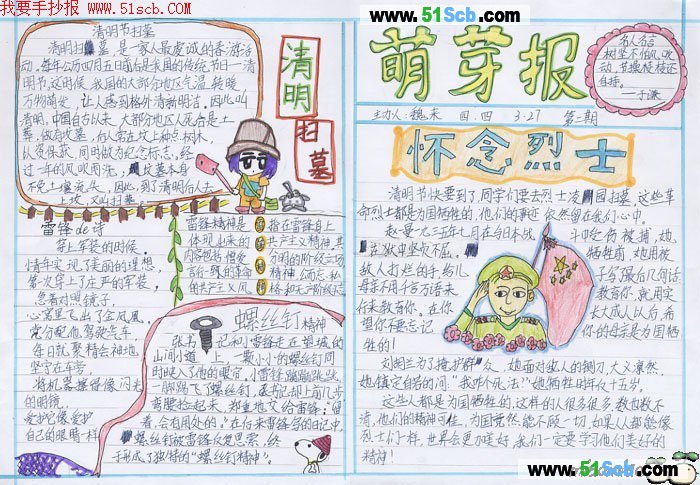 我要手抄报
www.51scb.com
www.51Scb.com
清明节扫墓
清明扫墓是一家人最虔诚的春游活
动。每年公历四月五日前后是我国的传统节日—清
明节。这时候,我国的大部分地区气温转暖
万物萌发,让人感到格外清新明洁。因此叫
清明。中国自古以来,大部分地区人死后是土
葬,做为坟墓,后人常在坟上种点树林,
以资保护,同时做为纪念标志。经
过一年的风吹雨洗,坟墓本身
不免土壤流失,因此,到了清明后人去
上坟,又叫扫墓。
清明
扫墓
雷锋de诗
穿上军装的时候。
情年实现了美丽的理想,
第一次穿上了庄严的军装。
急着对照镜子,
心窝里飞出了金凤凰。
党分配他驾驶汽车,
每日就聚精会神地,
坚守在车旁,
将机器擦得像闪光
的明镜,
爱护它像爱护
自己的眼睛一样。
雷锋精神是指在雷锋身上
体现出来的共产主义精神,其
言行一致的革命精神
的共产主义风格和无产阶级
螺丝钉精神
张书记和小雷锋走在望城的
山间小道上,一颗小小的螺丝钉同
时映入了他的眼帘。小雷锋蹦蹦跳跳
一脚踢飞了螺丝钉,张书记却上前几步
弯腰捡起来,郑重地交给雷锋:留
着,会有用处的。在后来雷锋多的日记中,
螺丝钉被雷锋反复思索,终
于形成了独特的“螺丝钉精神”。
萌芽报
名人名言
树坚不怕风吹
动,节操棱棱还
自持。
—于谦
主办人:魏来 四.四 3.27 第二期
怀念烈士
清明节快要到了,同学们要去烈士凌园扫墓,这些革
命烈士都是为国牺牲的,他们的事迹依然留在我们心中。
赵一曼一九三五年七月在台日本战斗中受伤被捕,她
在狱中坚贞不屈。牺牲前,她用被
敌人打烂的手给儿子写最后几句话:
母亲不用千言万语来教育你,就用实
行来教育你。在你长大成人以后,希
望你不要忘记你的母亲是为国牺
牲的!
刘胡兰为了掩护群众,她面对敌人的铡刀,大义凛然。
她镇定自若的问:“我咋个死法?”她牺牲时年仅十五岁。
这些人都是为国牺牲的,这样的人很多很多,数也数不
清,他们的精神可佳,为国竟然能不顾一切,如果人人都能像
烈士们一样,世界会更加美好,我们一定要学习他们美好的
精神!
www.51Scb.com